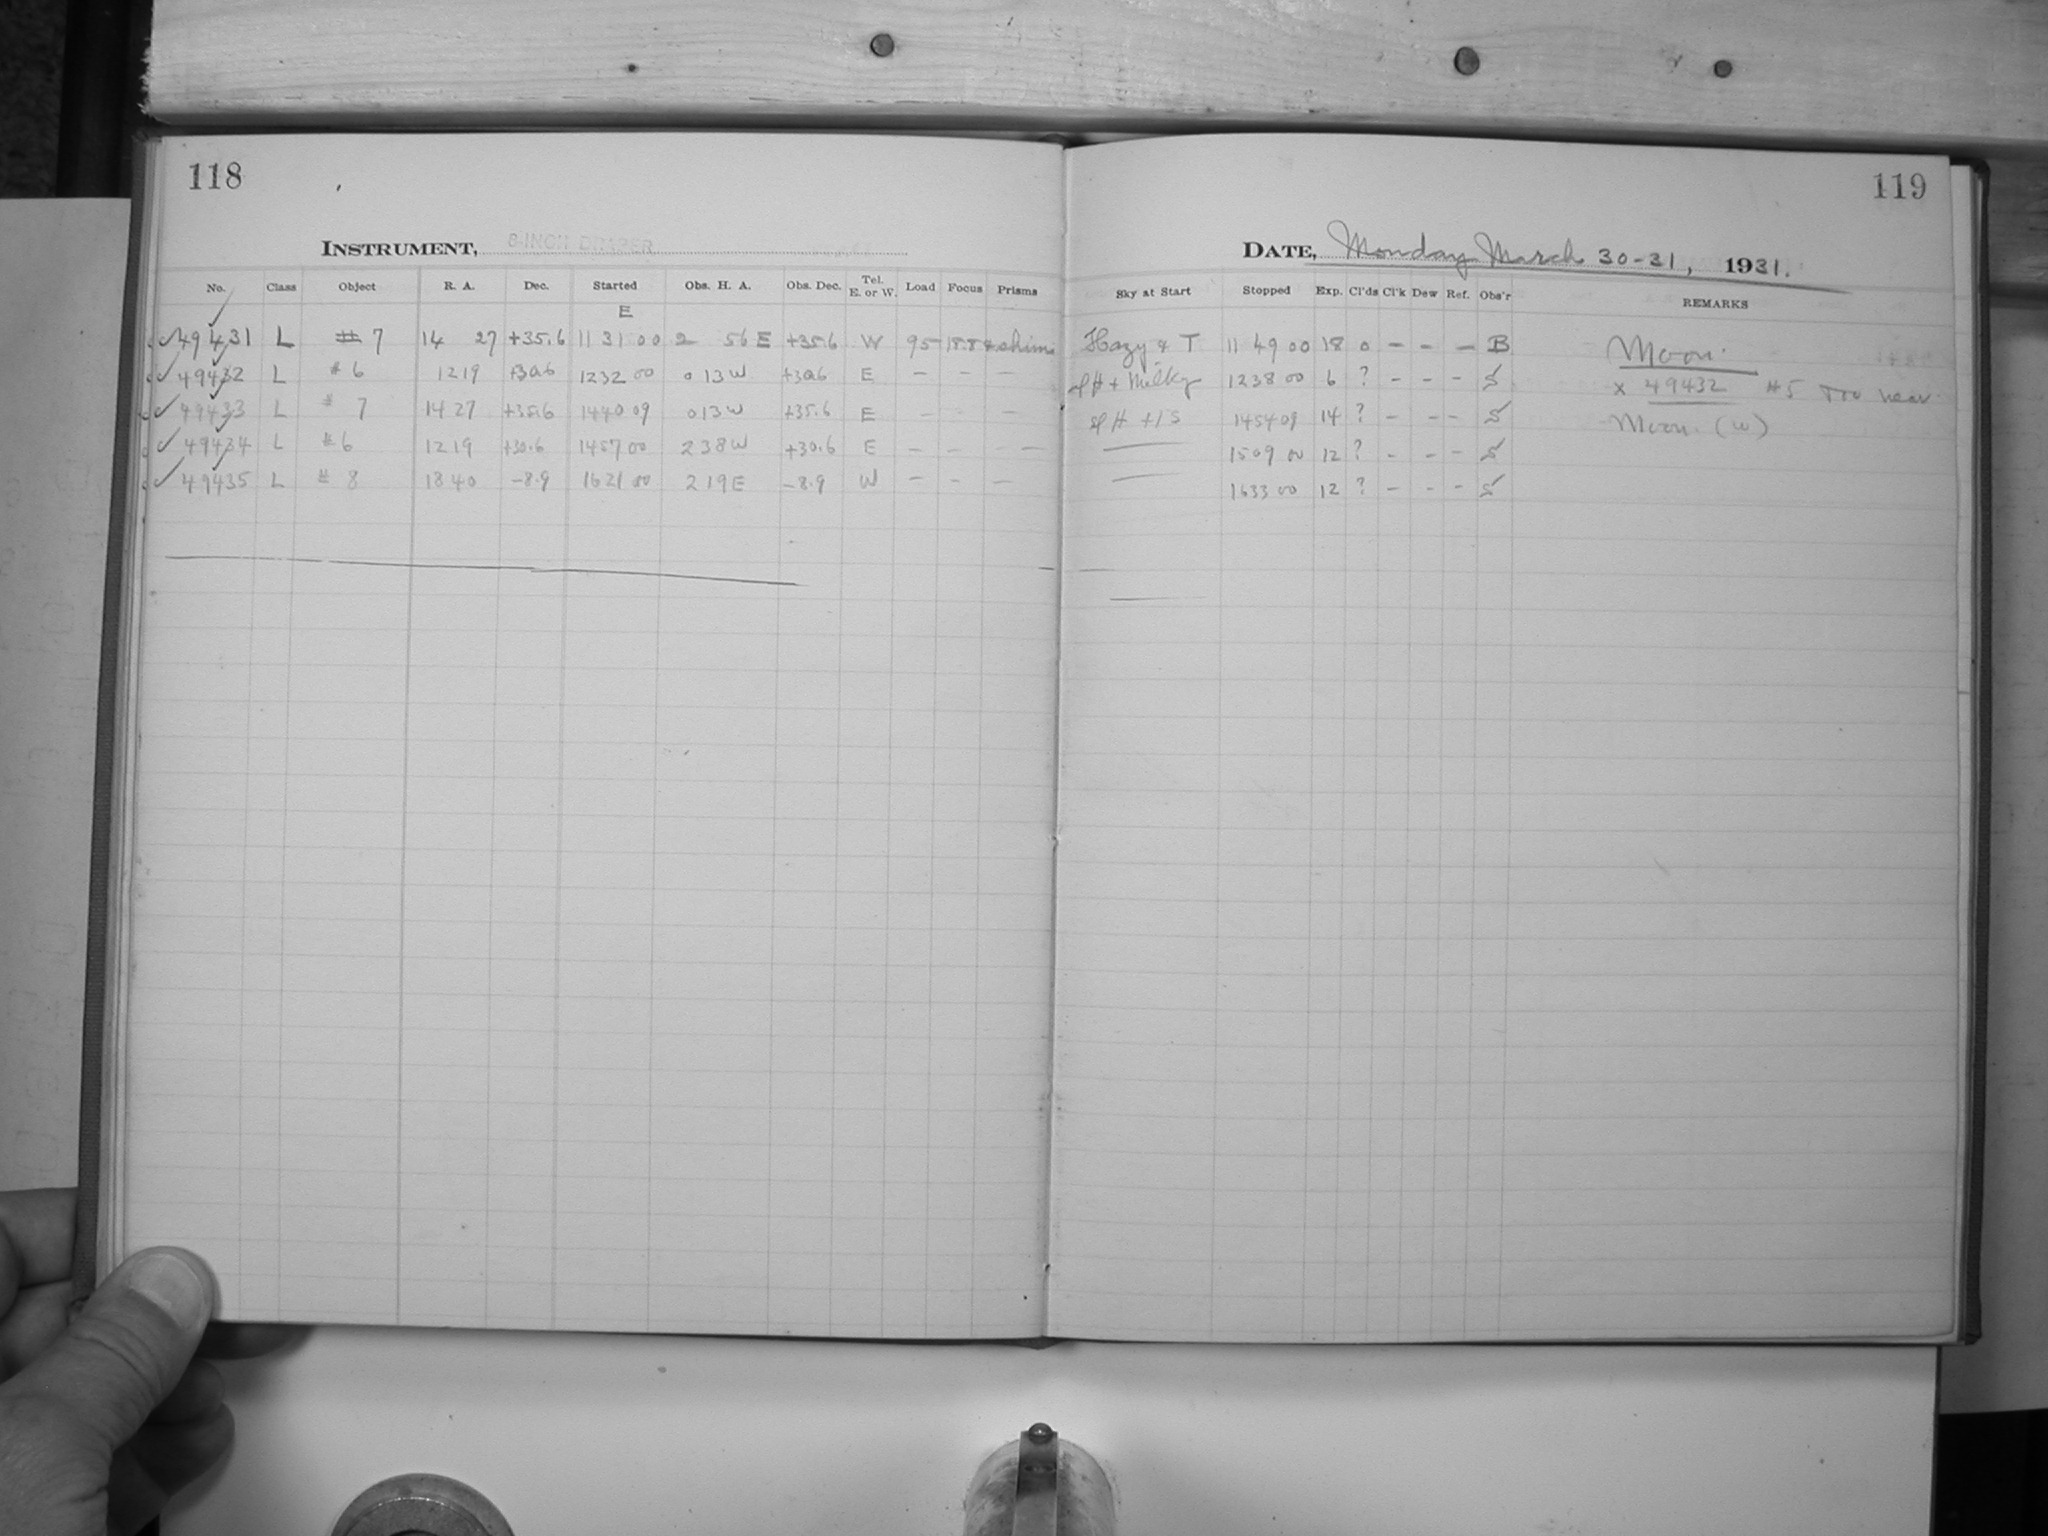 118
119
INSTRUMENT, 8-INCH DRAPER
DATE, Monday March 30-31, 1931.
No. Class Object R. A. Dec. Started Obs. H. A. Obs. Dec. Tel. E. or W. Load Focus Prisms Sky at Start Stopped Exp. Cl'ds Cl'k Dew Ref. Obs'r REMARKS
E
49431 L # 7 14 27 +35.6 11 31 00 2 56 E +35.6 W 95 Hazy & T 11 49 00 18 0 - - - B Moon.
49432 L # 6 12 19 +30.6 12 32 00 0 13 W +30.6 E - - - + Milky 12 38 00 6 ? - - - S x 49432 #5 Too near
49433 L # 7 14 27 +35.6 14 40 09 0 13 W +35.6 E - - - 14 54 09 14 ? - - - S Moon. (W)
49434 L # 6 12 19 +30.6 14 57 00 2 38 W +30.6 E - - - 15 09 00 12 ? - - - S
49435 L # 8 18 40 -8.9 16 21 00 2 19 E -8.9 W - - - 16 33 00 12 ? - - - S